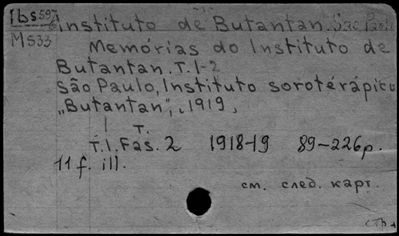 Ibs597 Instituto de Butantan. São Paulo
M533
Memórias do Instituto de
Butantan. T. 1-2
São Paulo, Instituto soroterápico
„Butantan", 1919,
T.
T. 1. Fas. 2 1918-19 89-226 p.
11 f. ill.
см. след. карт.